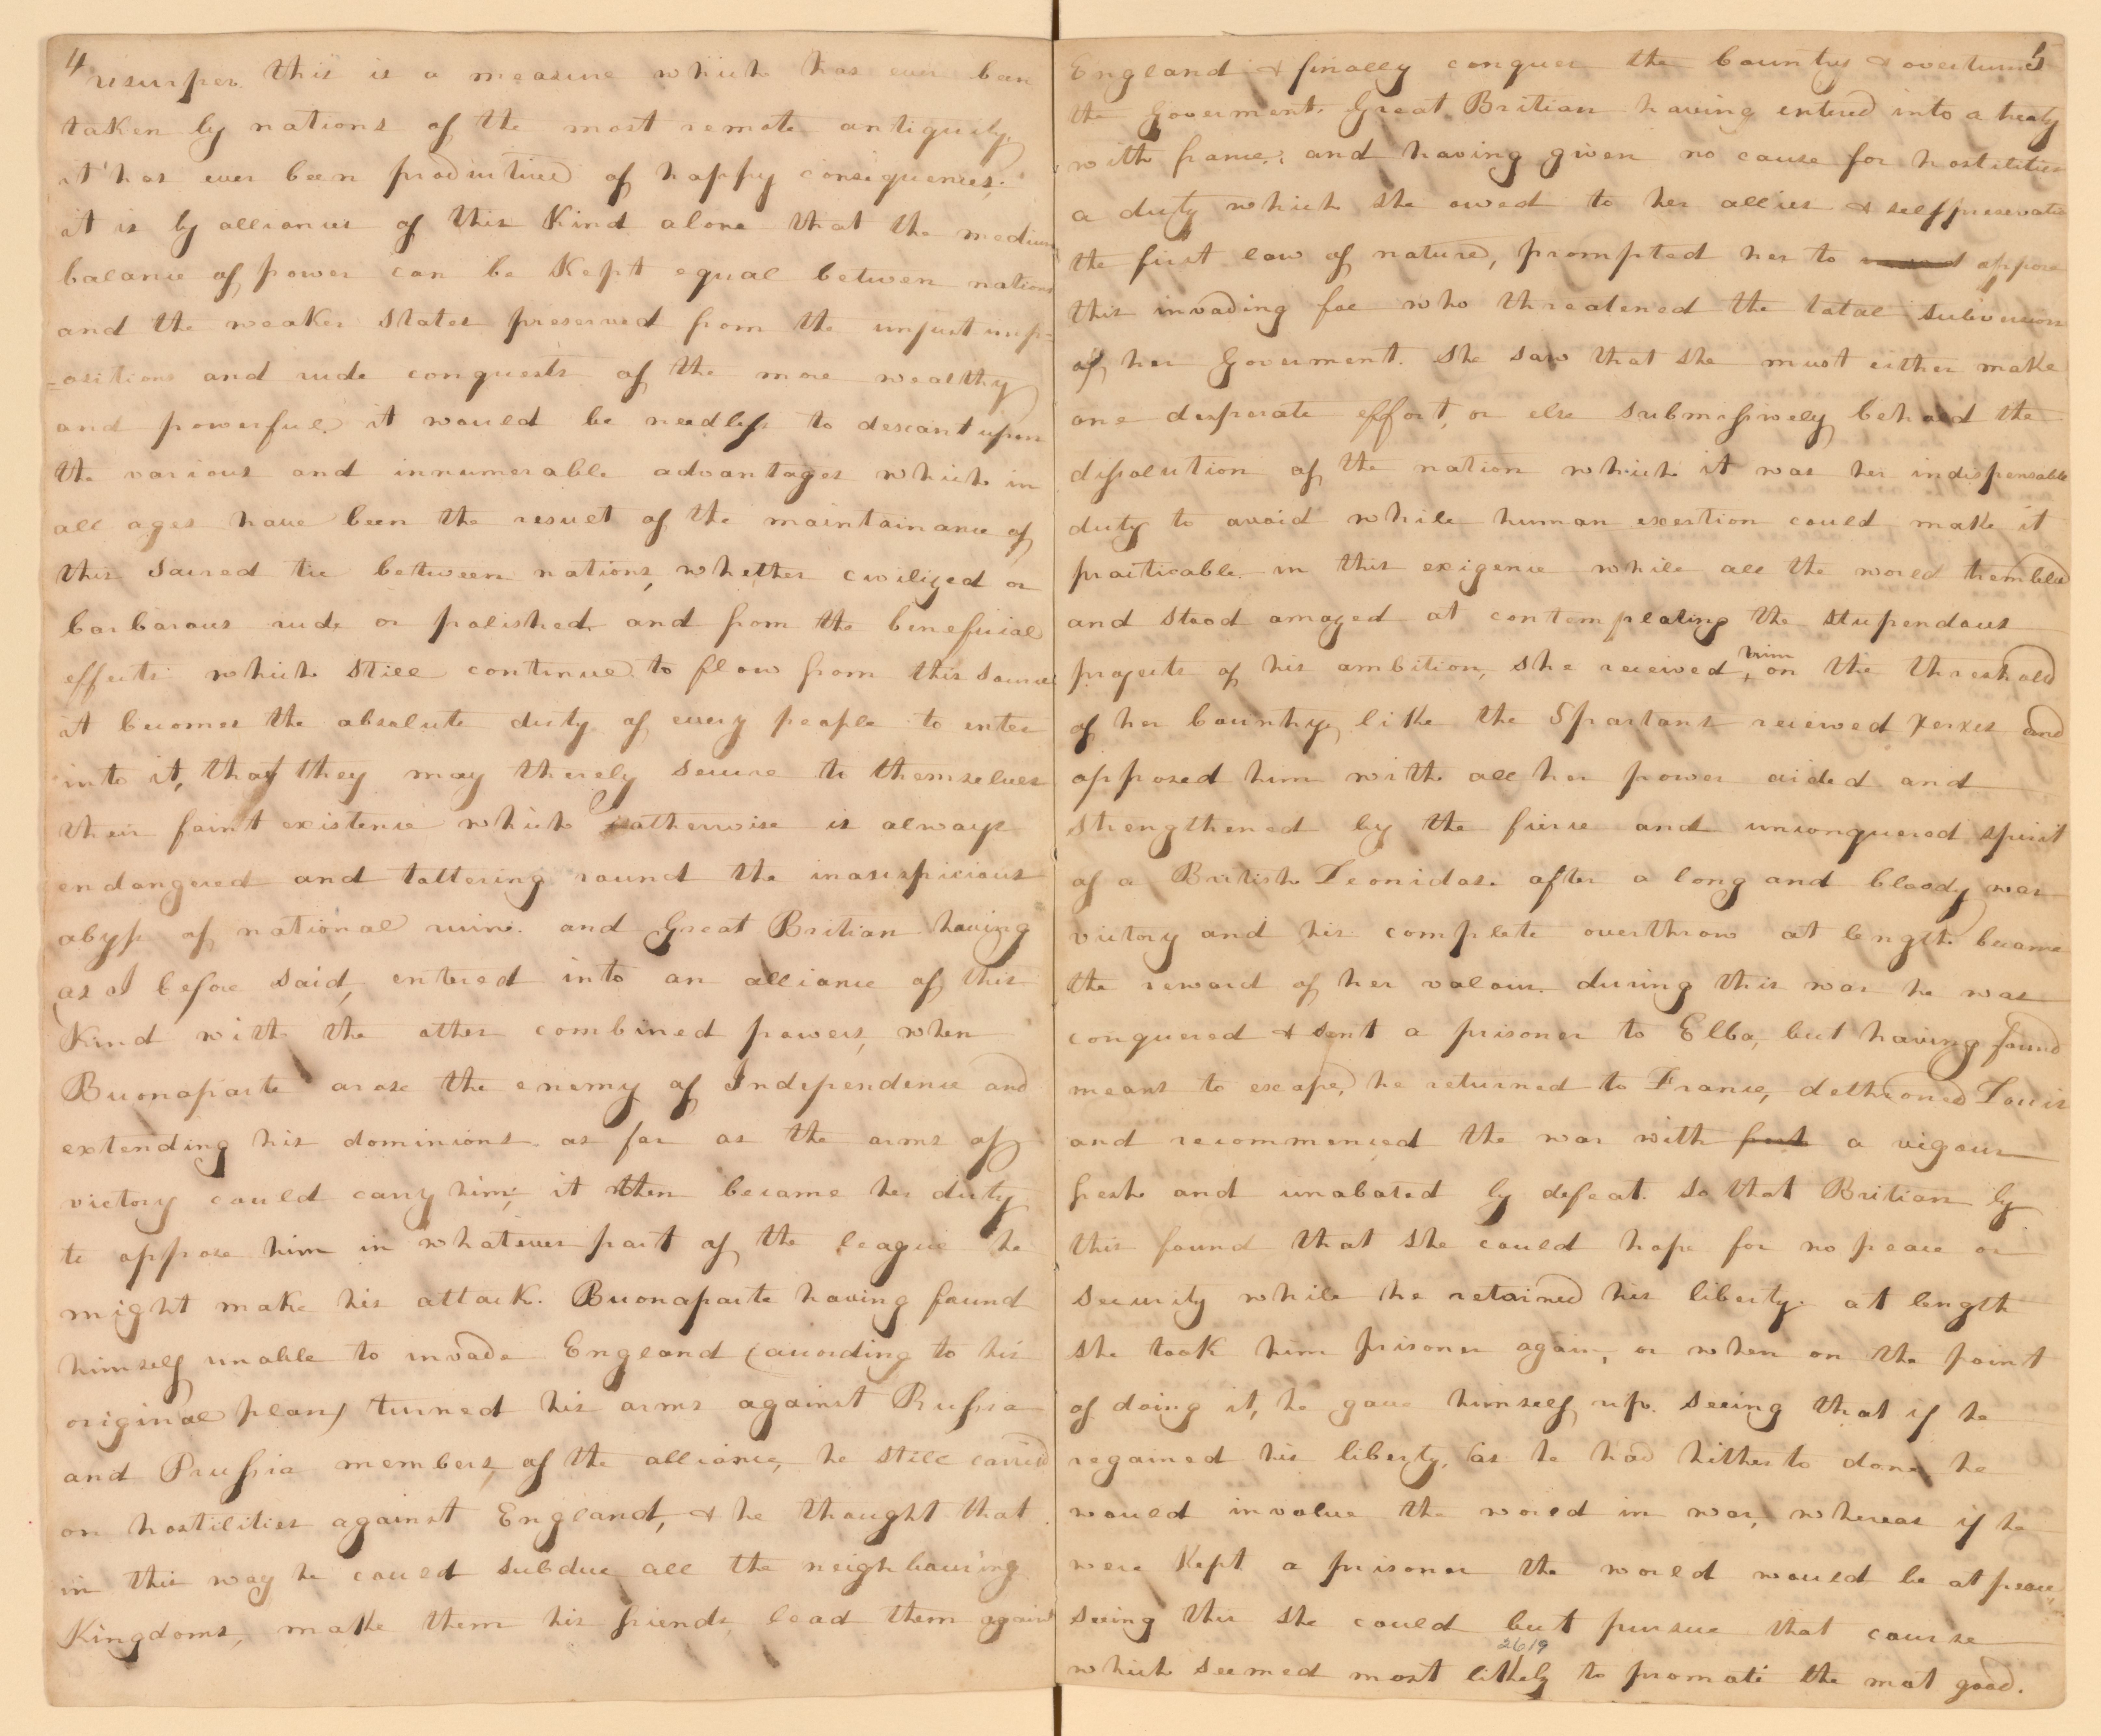 4
usurper. this is a measure which has ever been
taken by nations of the most remote antiquity,
it has ever been productived of happy consequences,
it is by alliances of this Kind alone that the medium
balance of power can be Kept equal betwen nations
and the weaker States preserved from the unjust imp-
-ositions and rude conquests of the more wealthy
and powerful. it would be needless to descant upon
the various and innumerable advantages which in
all ages have been the result of the maintainance of
this Sacred tie between nations, whether civilized or
barbarous rude or polished and from the beneficial
effects which still continue to flow from this Source
it becomes the absolute duty of every people to enter
into it, that they may therely secure to themselves
their faint existence which otherwise is always
endangered and tottering round the inauspicious
abyss of national ruin. and Great Britian having
(as I before said, entered into an alliance of this
Kind with the other combined powers, when
Buonaparte arose the enemy of Independence and
extending his dominions as far as the arms of
victory could carry him; it then became her duty
to oppose him in whatever part of the league he
might make his attack. Buonaparte having found
himself unable to invade England (according to his
original plan) turned his arms against Russia
and Prussia members, of the alliance, he still carried
on hostilities against England, & he thought that
in this way he could subdue all the neighbouring
Kingdoms, make them his friends, lead them against
5
England & finally conquer the Country & overturn
the Goverment. Great Britian having entered into a treaty
with france, and having given no cause for hostilities
a duty which she owed to her allies & selfpreservation
the first law of nature, prompted her to oppose
this invading foe who threatened the total subversion
of her Goverment. She saw that she must either make
one desperate effort, or else submissively behold the
dissolution of the nation which it was her indispensable
duty to avoid while human exertion could make it
practicable. in this exigence while all the world trembled
and stood amazed at contemplating the stupendous
projects of his ambition, she received him on the threshold
of her Country, like the Spartans received Xerxes and
opposed him with all her power aided and
strengthened by the fierce and unconquered spirit
of a British Leonidas. after a long and bloody war
victory and his complete overthrow at length became
the reward of her valour. during this war he was
conquered & sent a prisoner to Elba, but having found
means to escape, he returned to France, dethroned Louis
and recommenced the war with a vigour
fresh and unabated by defeat. So that Britian by
this found that she could hope for no peace or
security while he retained his liberty. at length
she took him prisoner again, or when on the point
of doing it, he gave himself up. Seeing that if he
regained his liberty, as he had hitherto done he
would involve the world in war, whereas if he
were Kept a prisoner the world would be at peace,
seeing this she could but pursue that course
2619
which seemed most likely to promote the most good.